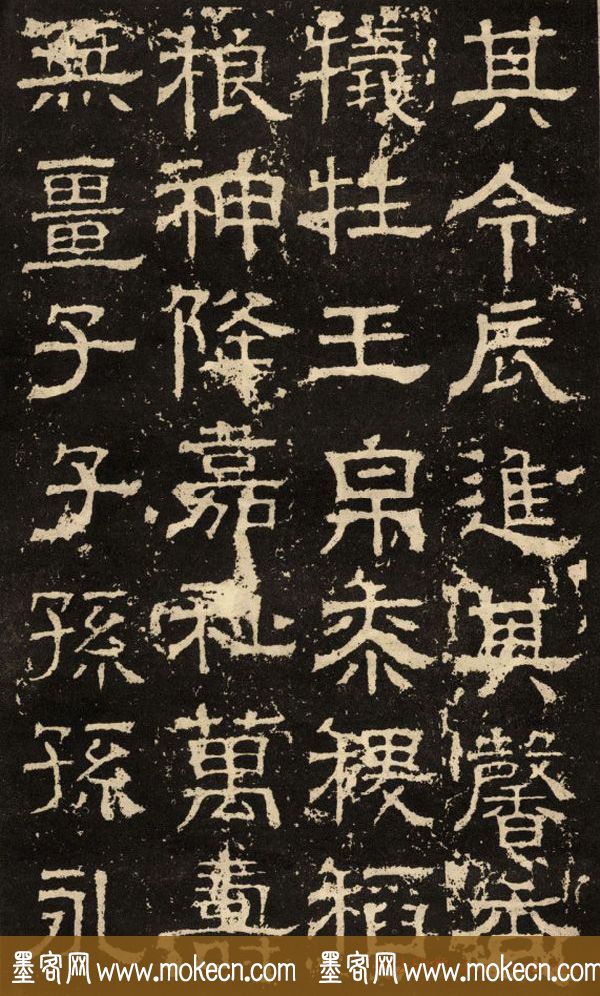 其令辰進其馨香
犧牲玉帛黍稷稻
粮神降嘉祉萬壽
無畺子子孫孫永
墨客网 www.mokecn.com 墨客网 www.mokecn.com